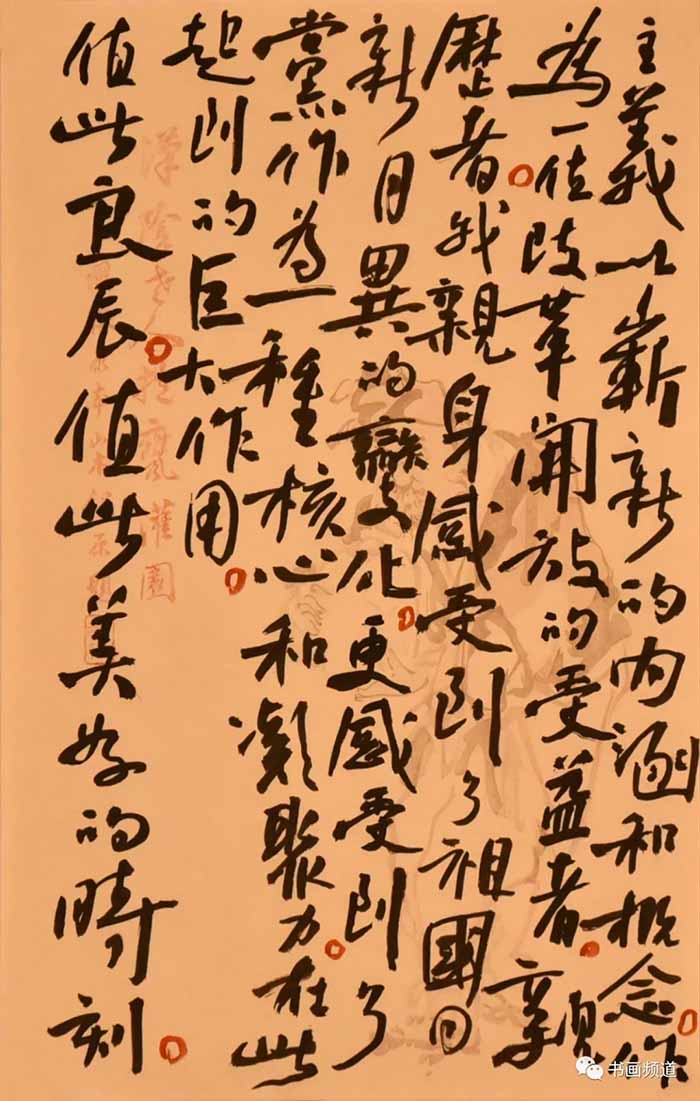 主義以嶄新的内涵和概念作
為一位改革開放的受益者親
歷者我親身感受到了祖國日
新月異的變化更感受到了
黨作為一種核心和凝聚力在此
起到的巨大作用
值此良辰值此美好的時刻
漢陰老人抱甕灌園
书画频道